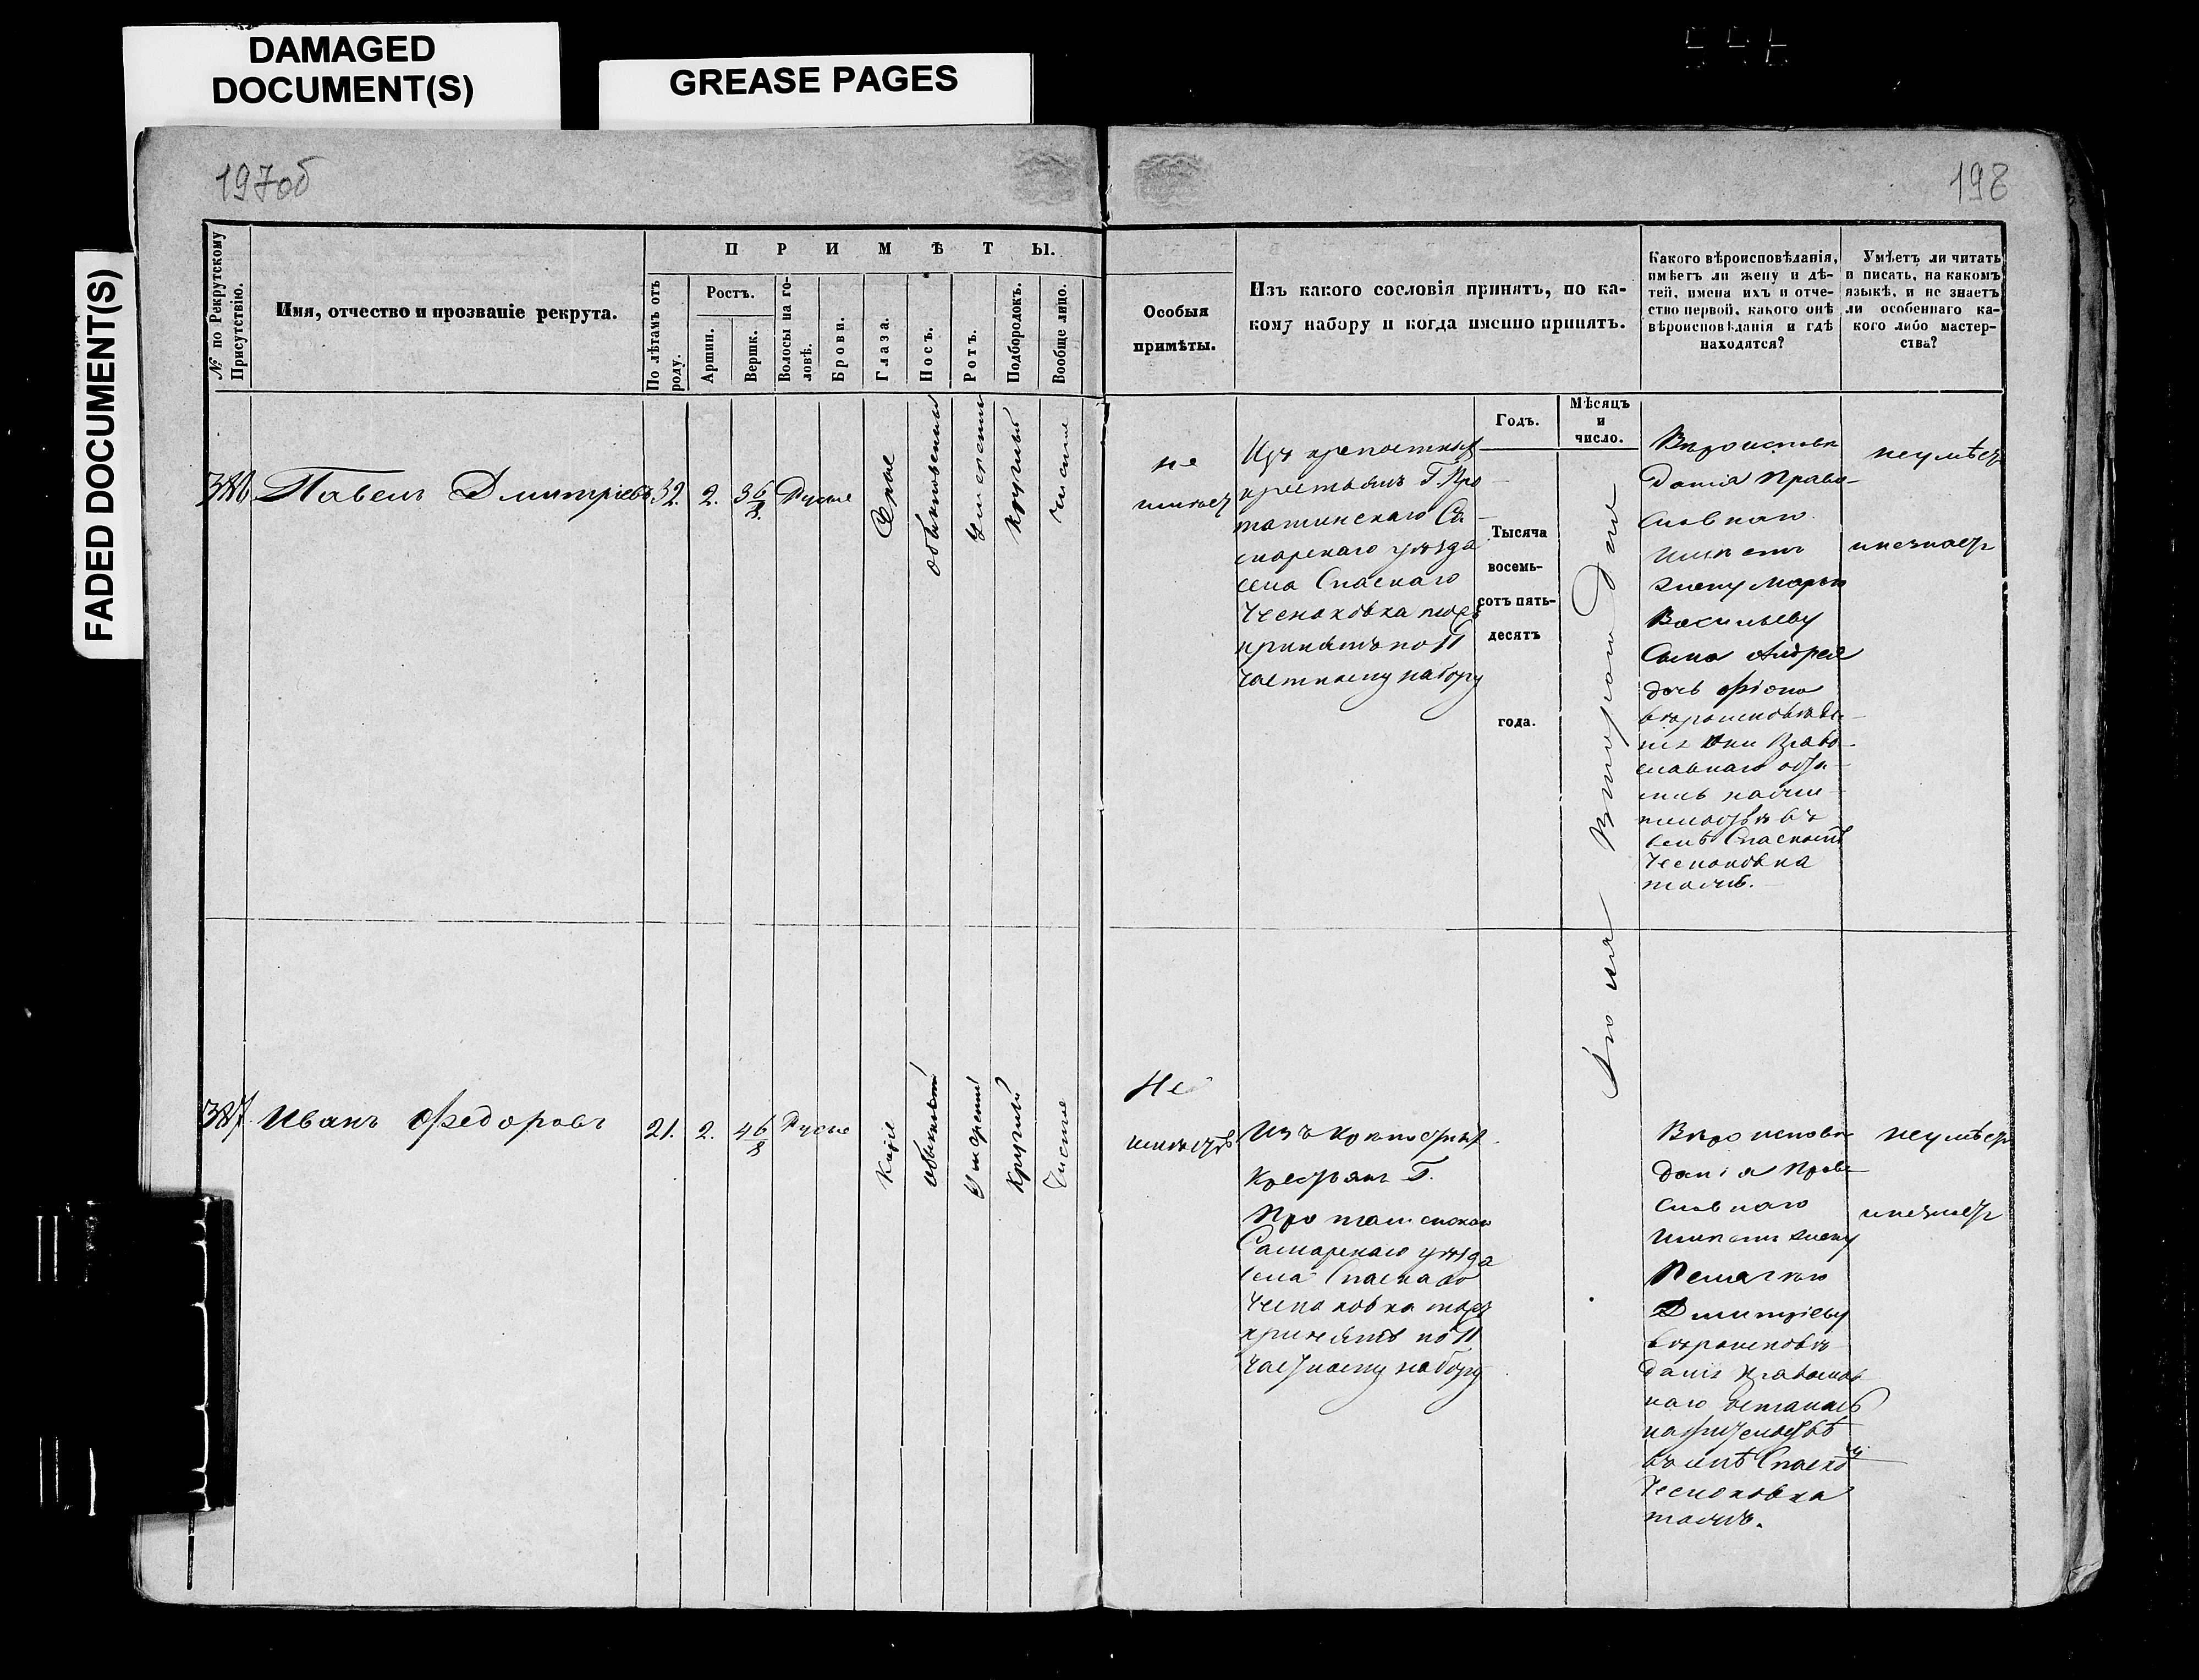 DAMAGED
DOCUMENT(S)
GREASE PAGES
FADED DOCUMENT(S)
197об
198
№ по Рекрутскому
Присутствію.
Имя, отчество и прозваніе рекрута.
ПРИМѢТЫ.
По лѣтамъ отъ
роду.
Ростъ.
Аршин.
Вершк.
Волосы на го-
ловѣ.
Брови.
Глаза.
Носъ.
Ротъ.
Подбородокъ.
Вообще лицо.
Особыя
примѣты.
Изъ какого сословія принятъ, по ка-
кому набору и когда именно принятъ.
Какого вѣроисповѣданія,
имѣетъ ли жену и дѣ-
тей, имена ихъ и отче-
ство первой, какого онѣ
вѣроисповѣданія и гдѣ
находятся?
Умѣетъ ли читать
и писать, на какомъ
языкѣ, и не знаетъ
ли особеннаго ка-
кого либо мастер-
ства?
Годъ.
Мѣсяцъ
и
число.
386
Павелъ Дмитріевъ
32.
2.
3 6/8.
Русые
Серые
обыкновенный
Умеренный
Круглый
чистое
не
имѣетъ
Изъ крепостныхъ
крестьянъ Г. Про
Самарскаго уѣзда
села Спаскаго
Чесноковка тожъ
принятъ по 11
частному набору
Тысяча
восемь-
сотъ пять-
десятъ
года.
Іюля Втораго дня
Вѣроисповѣ
данія Право-
славнаго
имѣетъ
жену Марью
Васильеву
Сына Андрея
дочь
вѣроисповѣда-
нія они Право-
славнаго оста-
лись на жи-
тельствѣ въ
селѣ Спаскомъ
Чесноковка
тожъ.
неумѣетъ
инезнаетъ
387.
Иванъ Федоровъ
21.
2.
4 6/8
Русые
Каріе
обыкнный
Умеренный
Круглый
Чистое
Не
имѣетъ
Изъ крѣпостныхъ
Крестьянъ Г.
Самарскаго уѣзда
села Спаскаго
Чесноковка тожъ
принятъ по 11
частному набору
Вѣроисповѣ
данія Право
славнаго
имѣетъ жену
Пелагѣю
Дмитріеву
вѣроисповѣ
данія православ
наго осталась
на жительствѣ
въ селѣ Спаско
Чесноковка
тожъ.
неумѣетъ
инезнаетъ